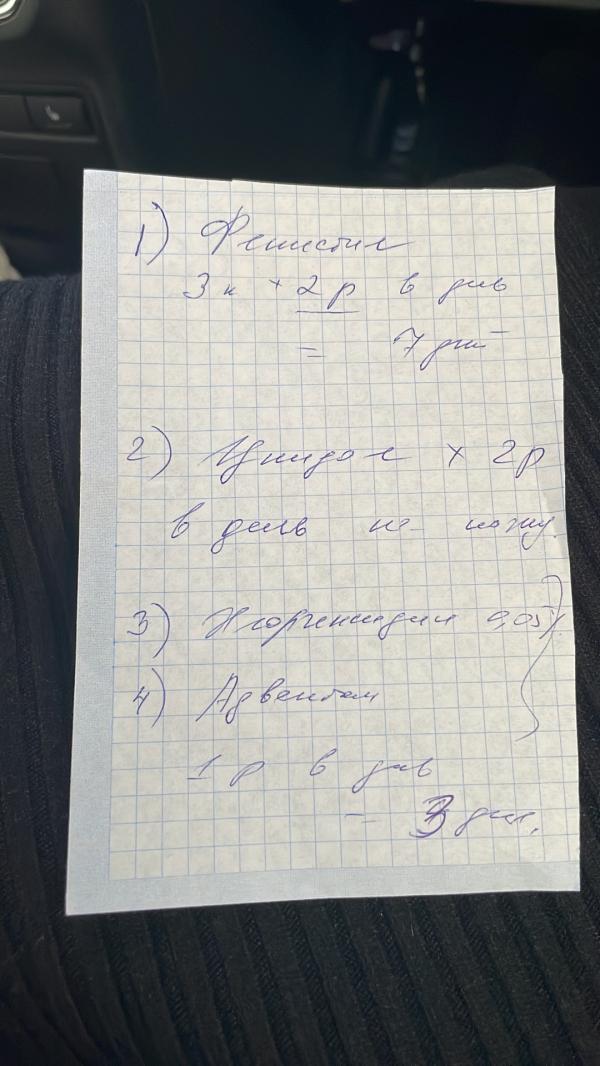 1) Фенистил
3 к × 2 р в день
= 7 дней
2) Циндол × 2р
в день на кожу.
3) Хлоргексидин 0,05%
4) Адвантан
1 р в день
= 3 дня.